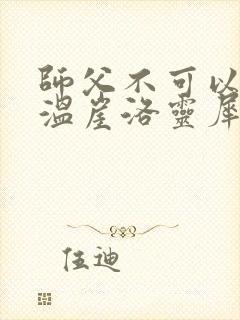 師父不可以
溫崖洛靈犀
伍迪